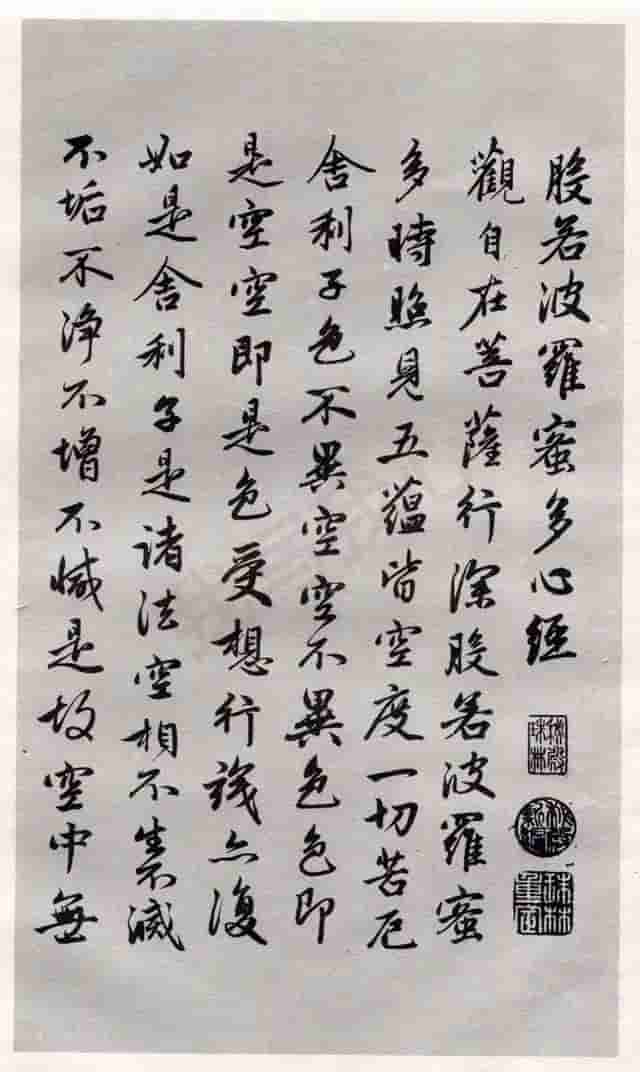 般若波羅蜜多心經
觀自在菩薩行深般若波羅蜜
多時照見五蘊皆空度一切苦厄
舍利子色不異空空不異色色即
是空空即是色受想行識亦復
如是舍利子是諸法空相不生不滅
不垢不淨不增不減是故空中無